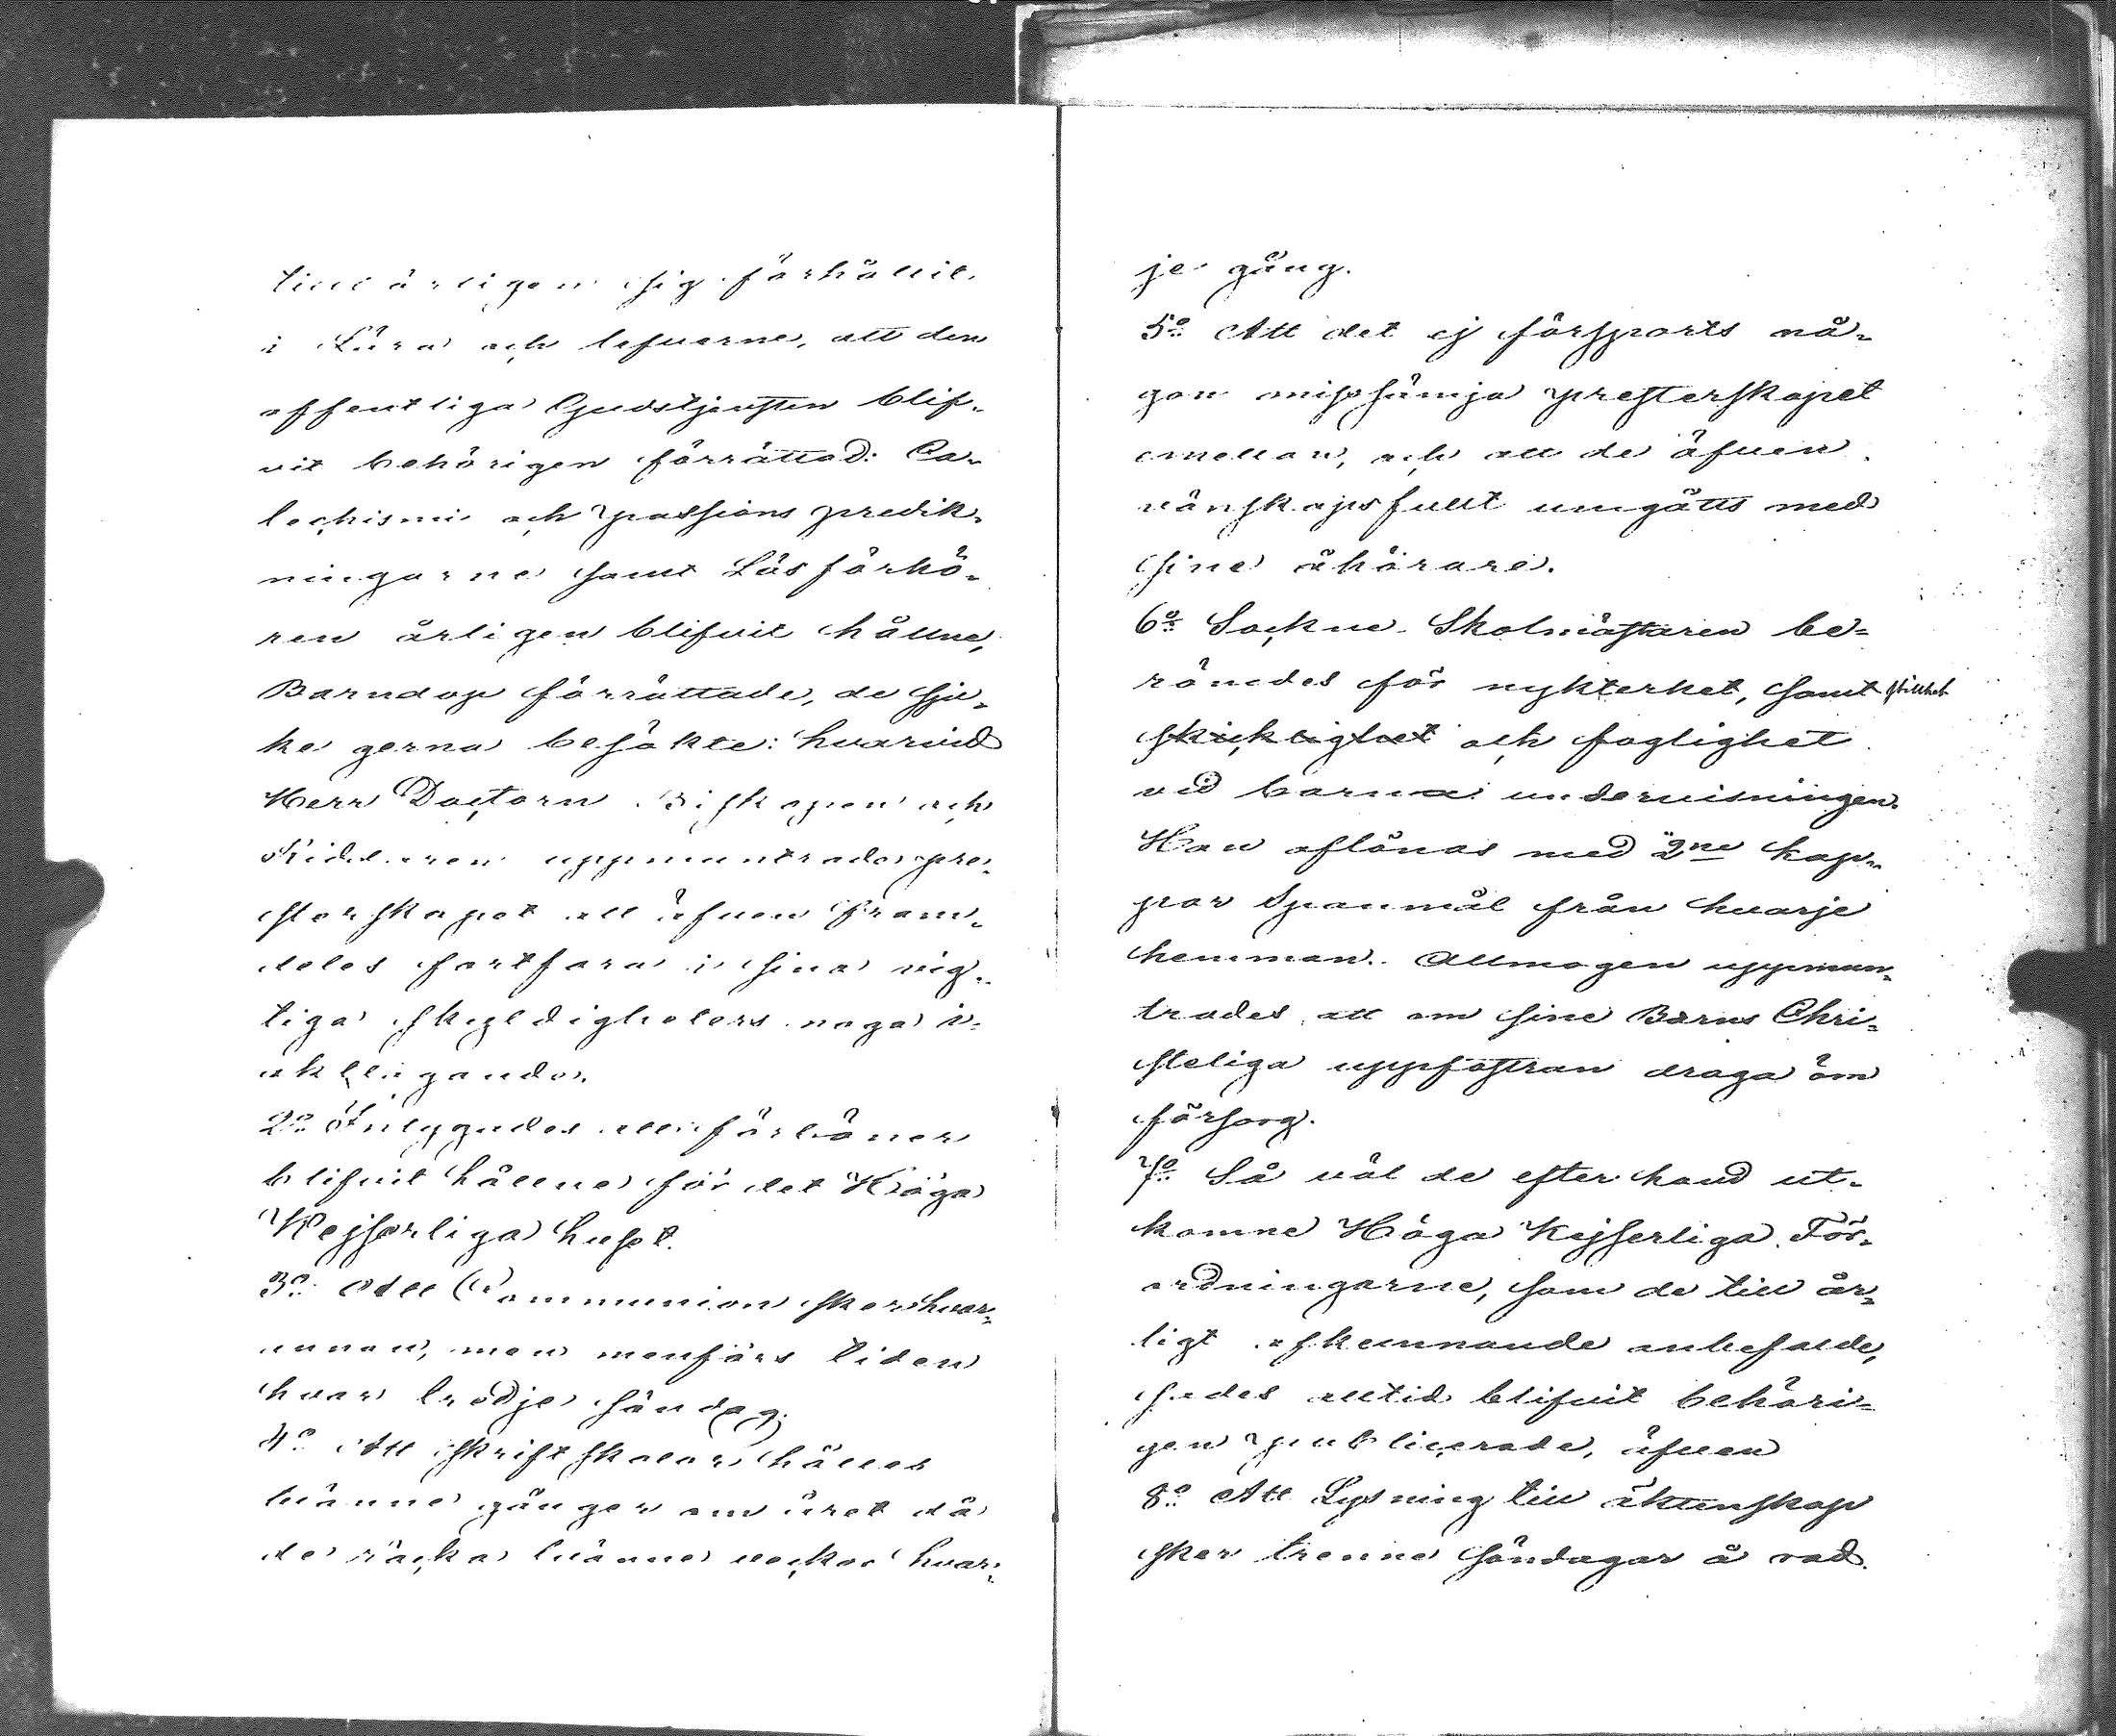 tillbörligen sig förhållit
i Lära och lefverne, att den
offentliga Gudstjensten blif-
vit behörigen förrättad: Ca-
techismi och passions predik-
ningarne samt Läsförhö-
ren årligen blifvit hållne,
Barndop förrättade, de sju-
ke gerna besökte: hvarvid
Herr Doctorn Biskopen och
Riddaren uppmuntrade pre-
sterskapet att äfven fram-
deles fortfara i sina vig-
tiga skyldigheters noga i-
akttagande.
2:o Intygades att förböner
blifvit hållne för det Höga
Kejserliga huset.
3:o Att Communion sker hvar-
annan, men menförs tiden
hvar tredje söndag.
4:o Att skriftskolor hålles
tvänne gånger om året då
de räcka tvänne veckor hvar-
je gång.
5:o Att det ej försports nå-
gon missämja presterskapet
emellan, och att de äfven
vänskapsfullt umgåtts med
sine åhörare.
6:o Sockne-Skolmästaren be-
römdes för nykterhet, samt stillhet
skicklighet och foglighet
vid barna undervisningen.
Han aflönas med 2ne kap-
par Spanmål från hvarje
hemman. Allmogen uppmun-
trades att om sine Barns Chri-
steliga uppfostran draga öm
försorg.
7:o Så väl de efter hand ut-
komne Höga Kejserliga För-
ordningarne, som de till år-
ligt afkunnande anbefalde,
sades alltid blifvit behöri-
gen publicerade, äfven
8:o Att Lysning till äktenskap
sker trenne söndagar å rad.